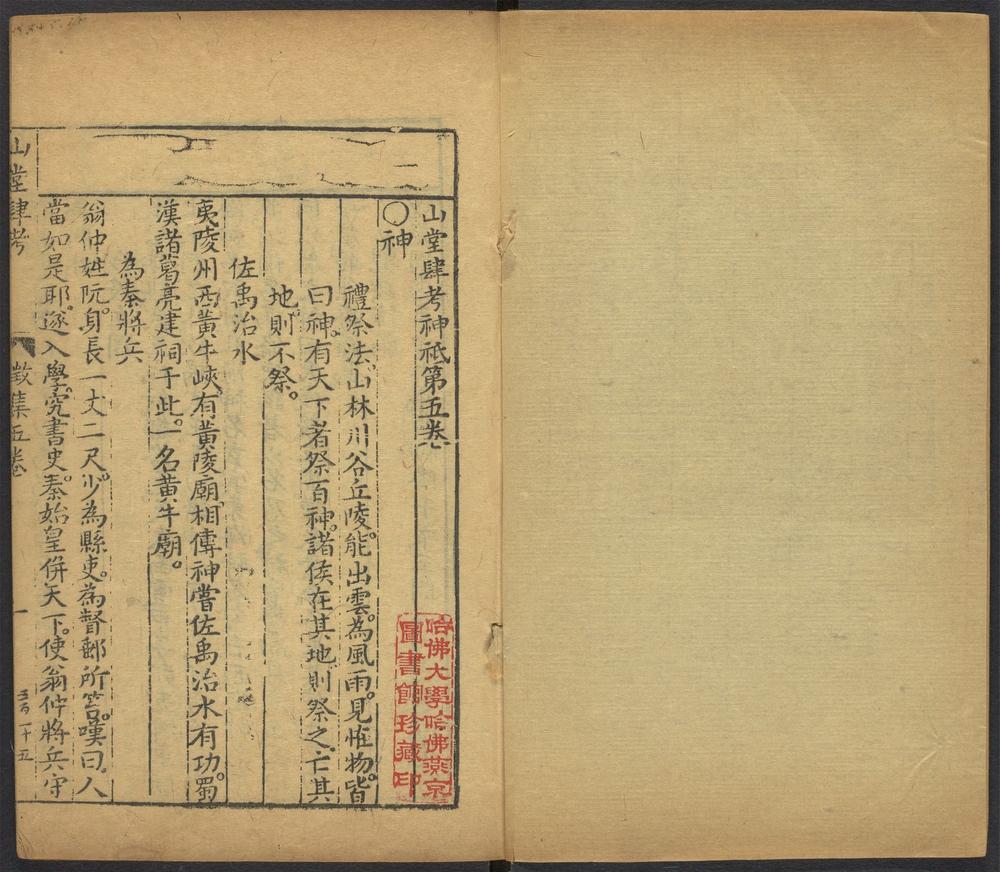 山堂肆考神祇第五卷
○神
禮祭法、山林川谷丘陵。能出雲。為風雨。見恠物。皆
曰神。有天下者祭百神。諸侯在其地則祭之。亡其
地。則不祭。
佐禹治水
夷陵州西黃牛峽。有黃陵廟。相傳神嘗佐禹治水有功。蜀
漢諸葛亮建祠于此。一名黃牛廟。
為秦將兵
翁仲姓阮。身長一丈二尺。少為縣吏。為督郵所笞。嘆曰。人
當如是耶。遂入學。究書史。秦始皇併天下。使翁仲將兵守
山堂肆考
徵集五卷
一
哈佛大學哈佛燕京
圖書館珍藏印
二